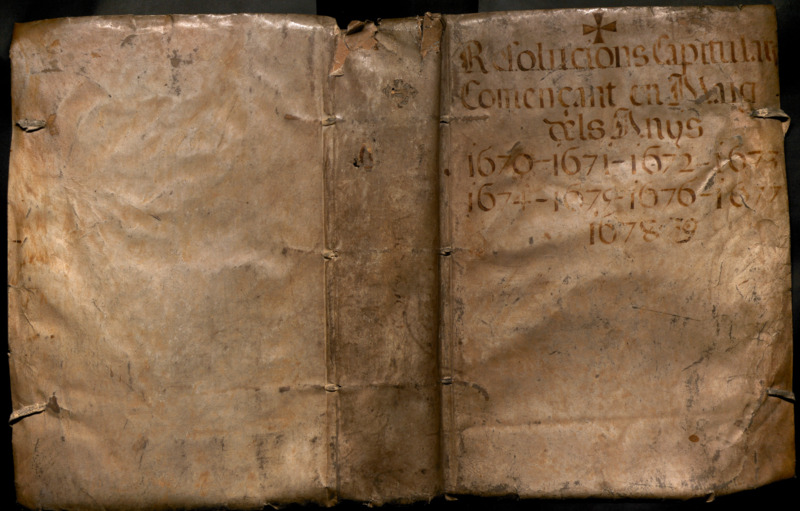 ✠
Resolucions Capitulars
Comensant en Maig
dels Anys
1670-1671-1672-1673
1674-1675-1676-1677
1678-79